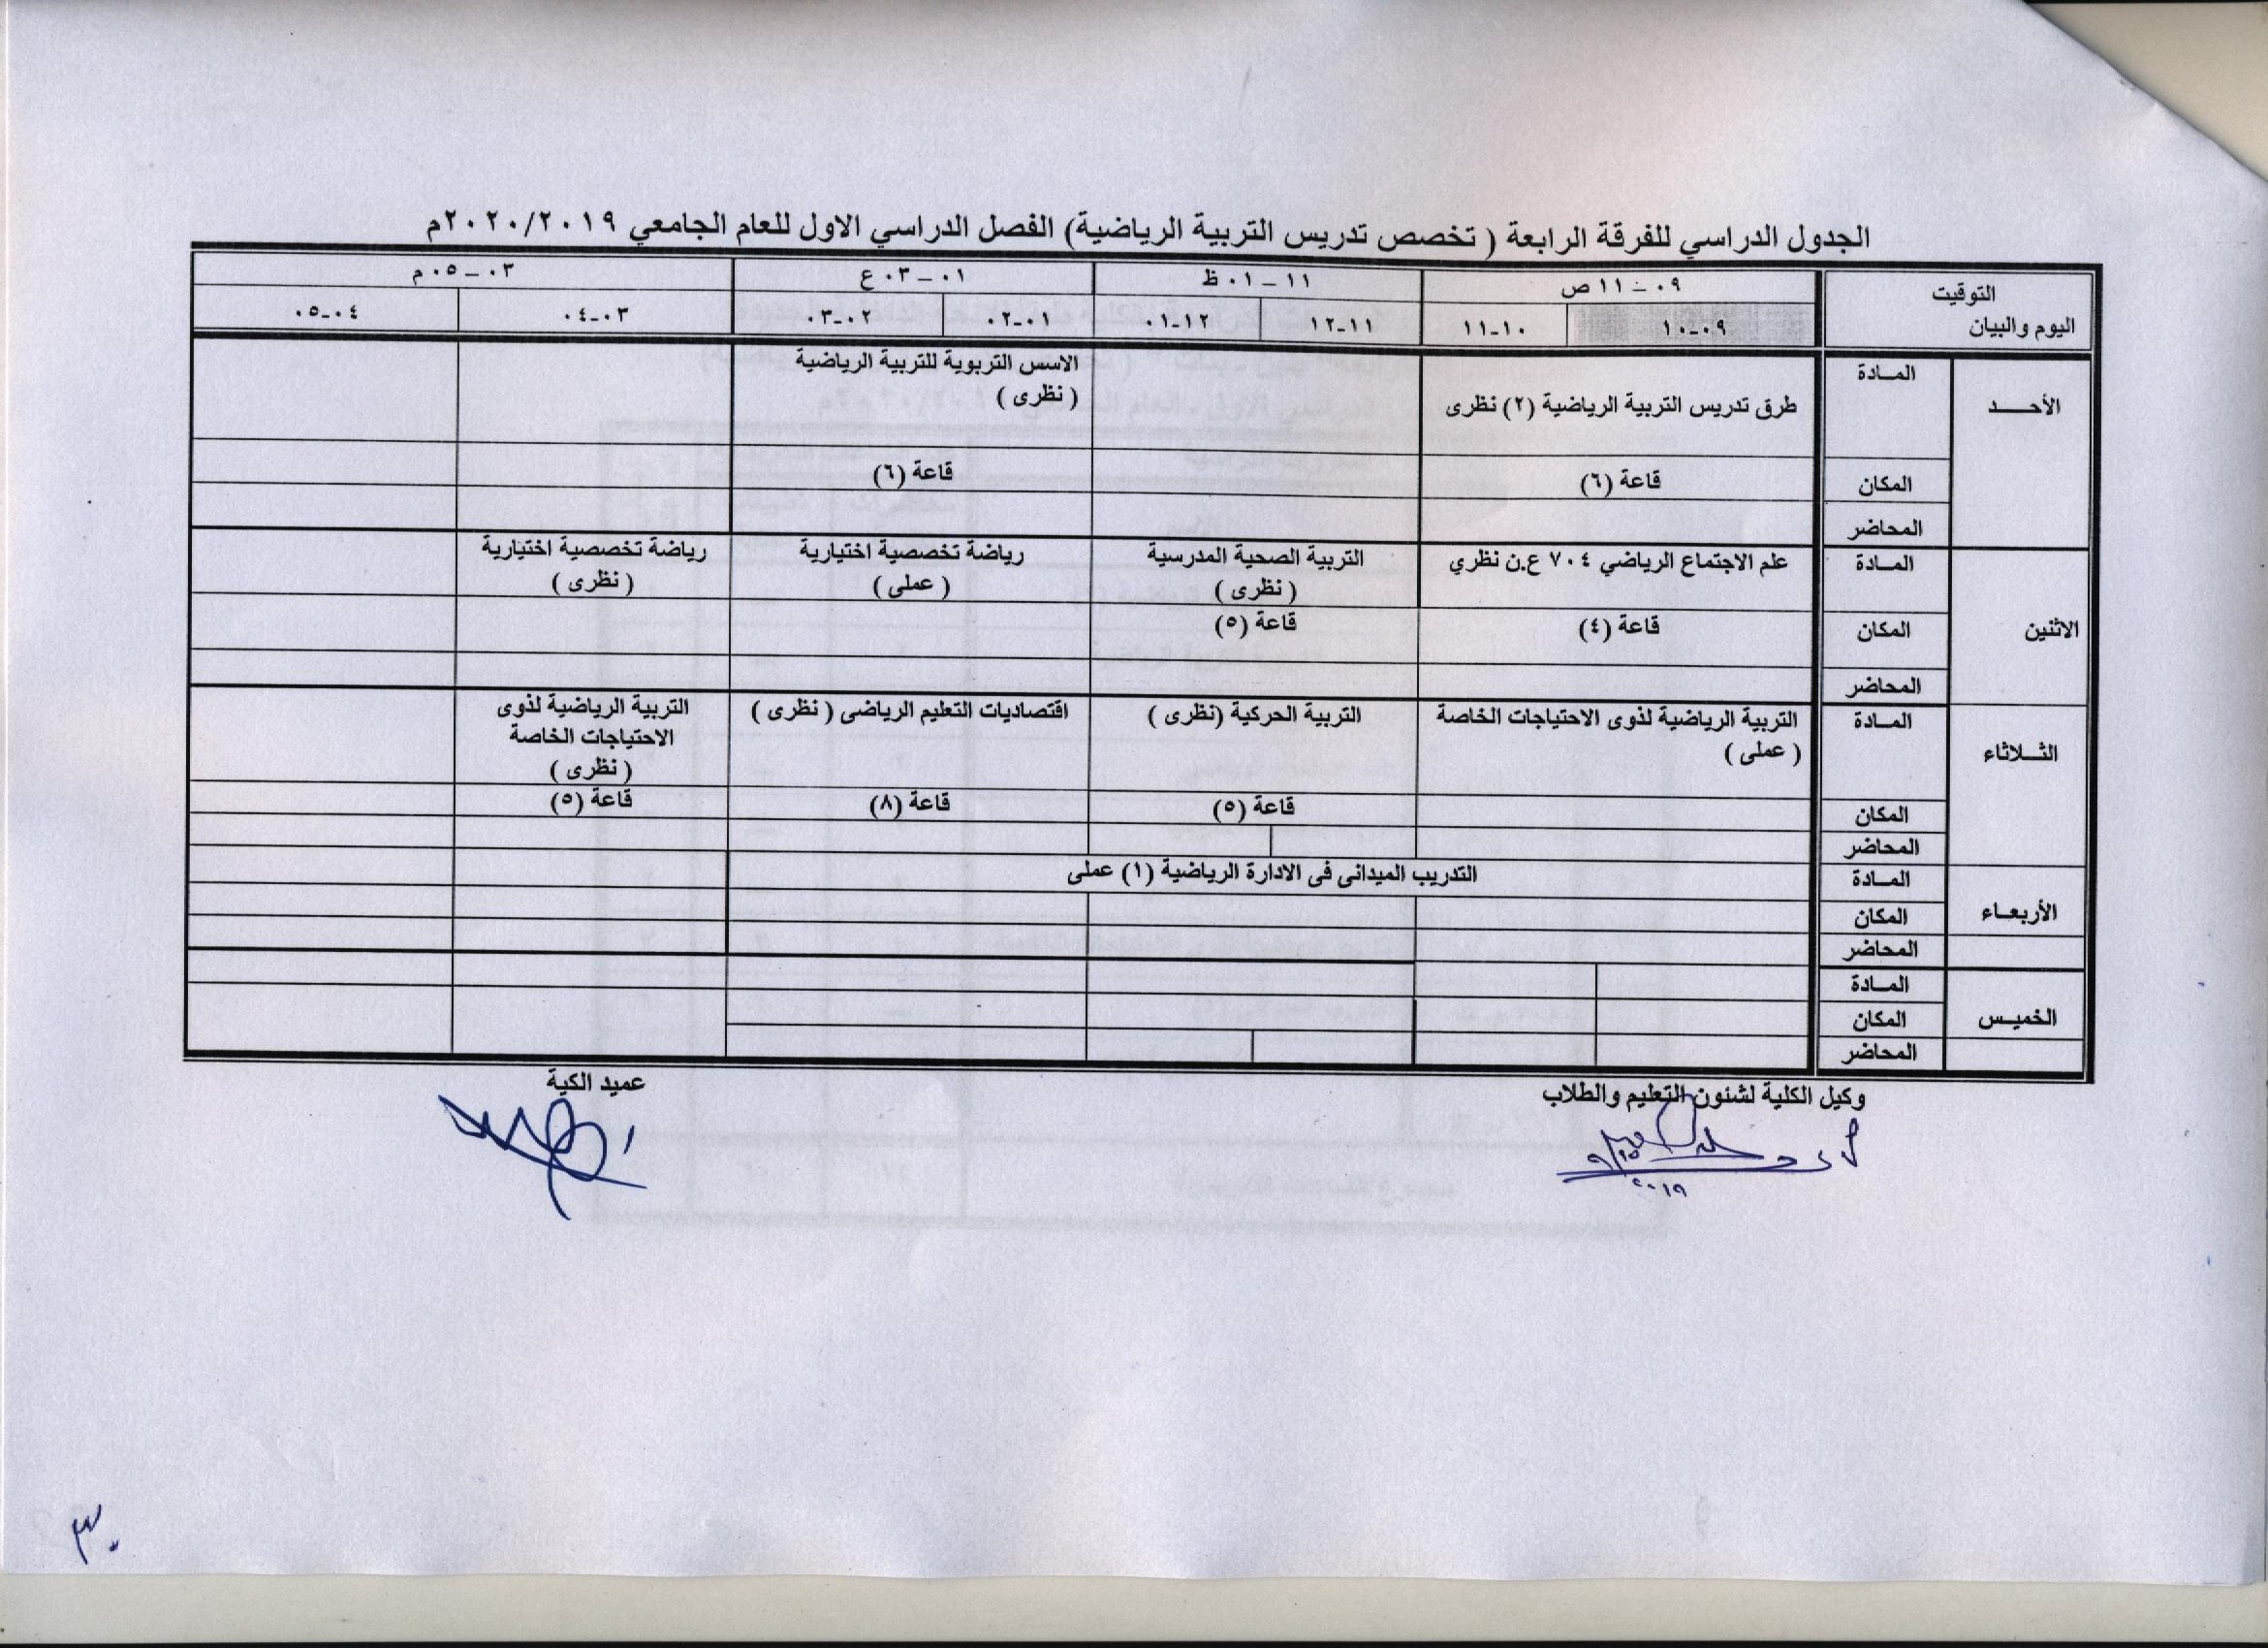 الجدول الدراسي للفرقة الرابعة ( تخصص تدريس التربية الرياضية) الفصل الدراسي الاول للعام الجامعي ٢٠٢٠/٢٠١٩م
التوقيت
اليوم والبيان
٠٩ – ١١ ص
١١ – ٠١ ظ
٠١ – ٠٣ ع
٠٣ – ٠٥ م
٠٩-١٠
١٠-١١
١١-١٢
١٢-٠١
٠١-٠٢
٠٢-٠٣
٠٣-٠٤
٠٤-٠٥
الأحـــد
المــادة
طرق تدريس التربية الرياضية (٢) نظرى
الاسس التربوية للتربية الرياضية
( نظرى )
المكان
قاعة (٦)
قاعة (٦)
المحاضر
الاثنين
المــادة
علم الاجتماع الرياضي ٧٠٤ ع.ن نظري
التربية الصحية المدرسية
( نظرى )
رياضة تخصصية اختيارية
( عملى )
رياضة تخصصية اختيارية
( نظرى )
المكان
قاعة (٤)
قاعة (٥)
المحاضر
الثــلاثاء
المــادة
التربية الرياضية لذوى الاحتياجات الخاصة
( عملى )
التربية الحركية (نظرى )
اقتصاديات التعليم الرياضى ( نظرى )
التربية الرياضية لذوى
الاحتياجات الخاصة
( نظرى )
المكان
قاعة (٥)
قاعة (٨)
قاعة (٥)
المحاضر
الأربعـاء
المــادة
التدريب الميدانى فى الادارة الرياضية (١) عملى
المكان
المحاضر
الخميـس
المــادة
المكان
المحاضر
وكيل الكلية لشئون التعليم والطلاب
عميد الكية
٢٠١٩
٣٠